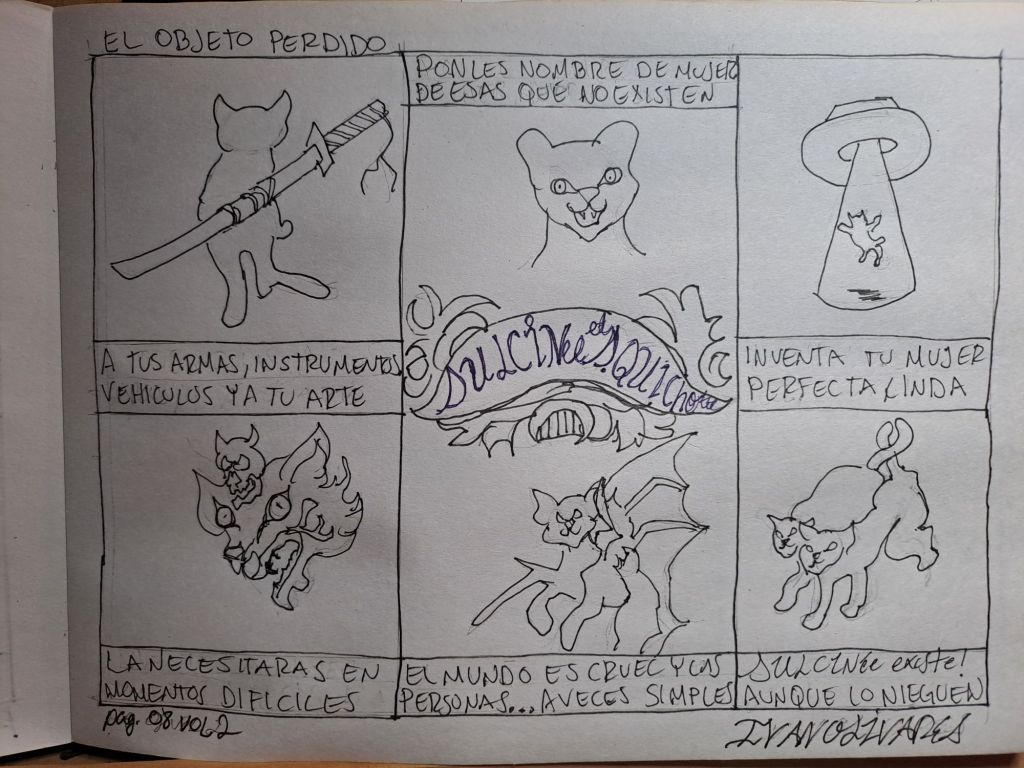 EL OBJETO PERDIDO
PONLES NOMBRE DE MUJER
DE ESAS QUE NO EXISTEN
DULCINée el DQUIChotte
A TUS ARMAS, INSTRUMENTOS
VEHICULOS Y A TU ARTE
INVENTA TU MUJER
PERFECTA LINDA
LA NECESITARAS EN
MOMENTOS DIFICILES
EL MUNDO ES CRUEL Y LAS
PERSONAS... A VECES SIMPLES
DULCINée existe!
AUNQUE LO NIEGUEN
pag. 08 VOL 2
IVAN OLIVARES